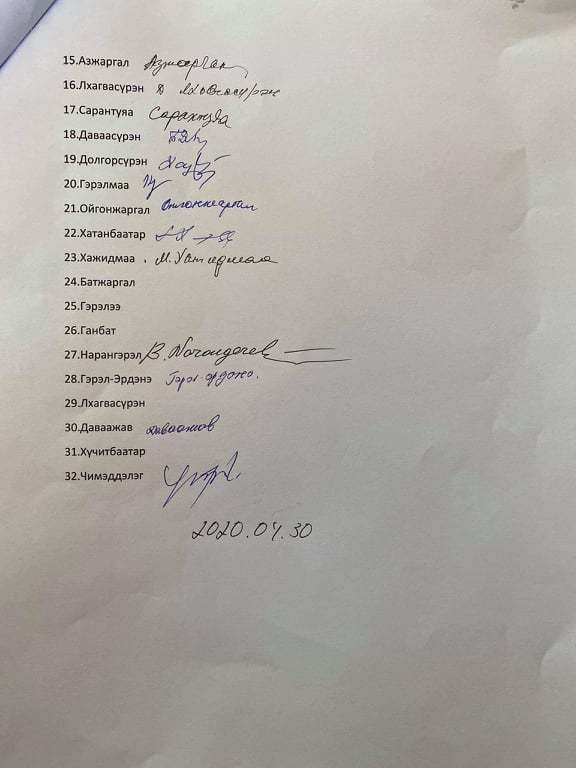 15.Азжаргал Азжаргал
16.Лхагвасүрэн Лхагвасүрэн
17.Сарантуяа Сарантуяа
18.Даваасүрэн
19.Долгорсүрэн
20.Гэрэлмаа
21.Ойгонжаргал Ойгонжаргал
22.Хатанбаатар
23.Хажидмаа
24.Батжаргал
25.Гэрэлээ
26.Ганбат
27.Нарангэрэл
28.Гэрэл-Эрдэнэ Гэрэл-Эрдэнэ.
29.Лхагвасүрэн
30.Даваажав Даваажав
31.Хүчитбаатар
32.Чимэддэлэг
2020.04.30